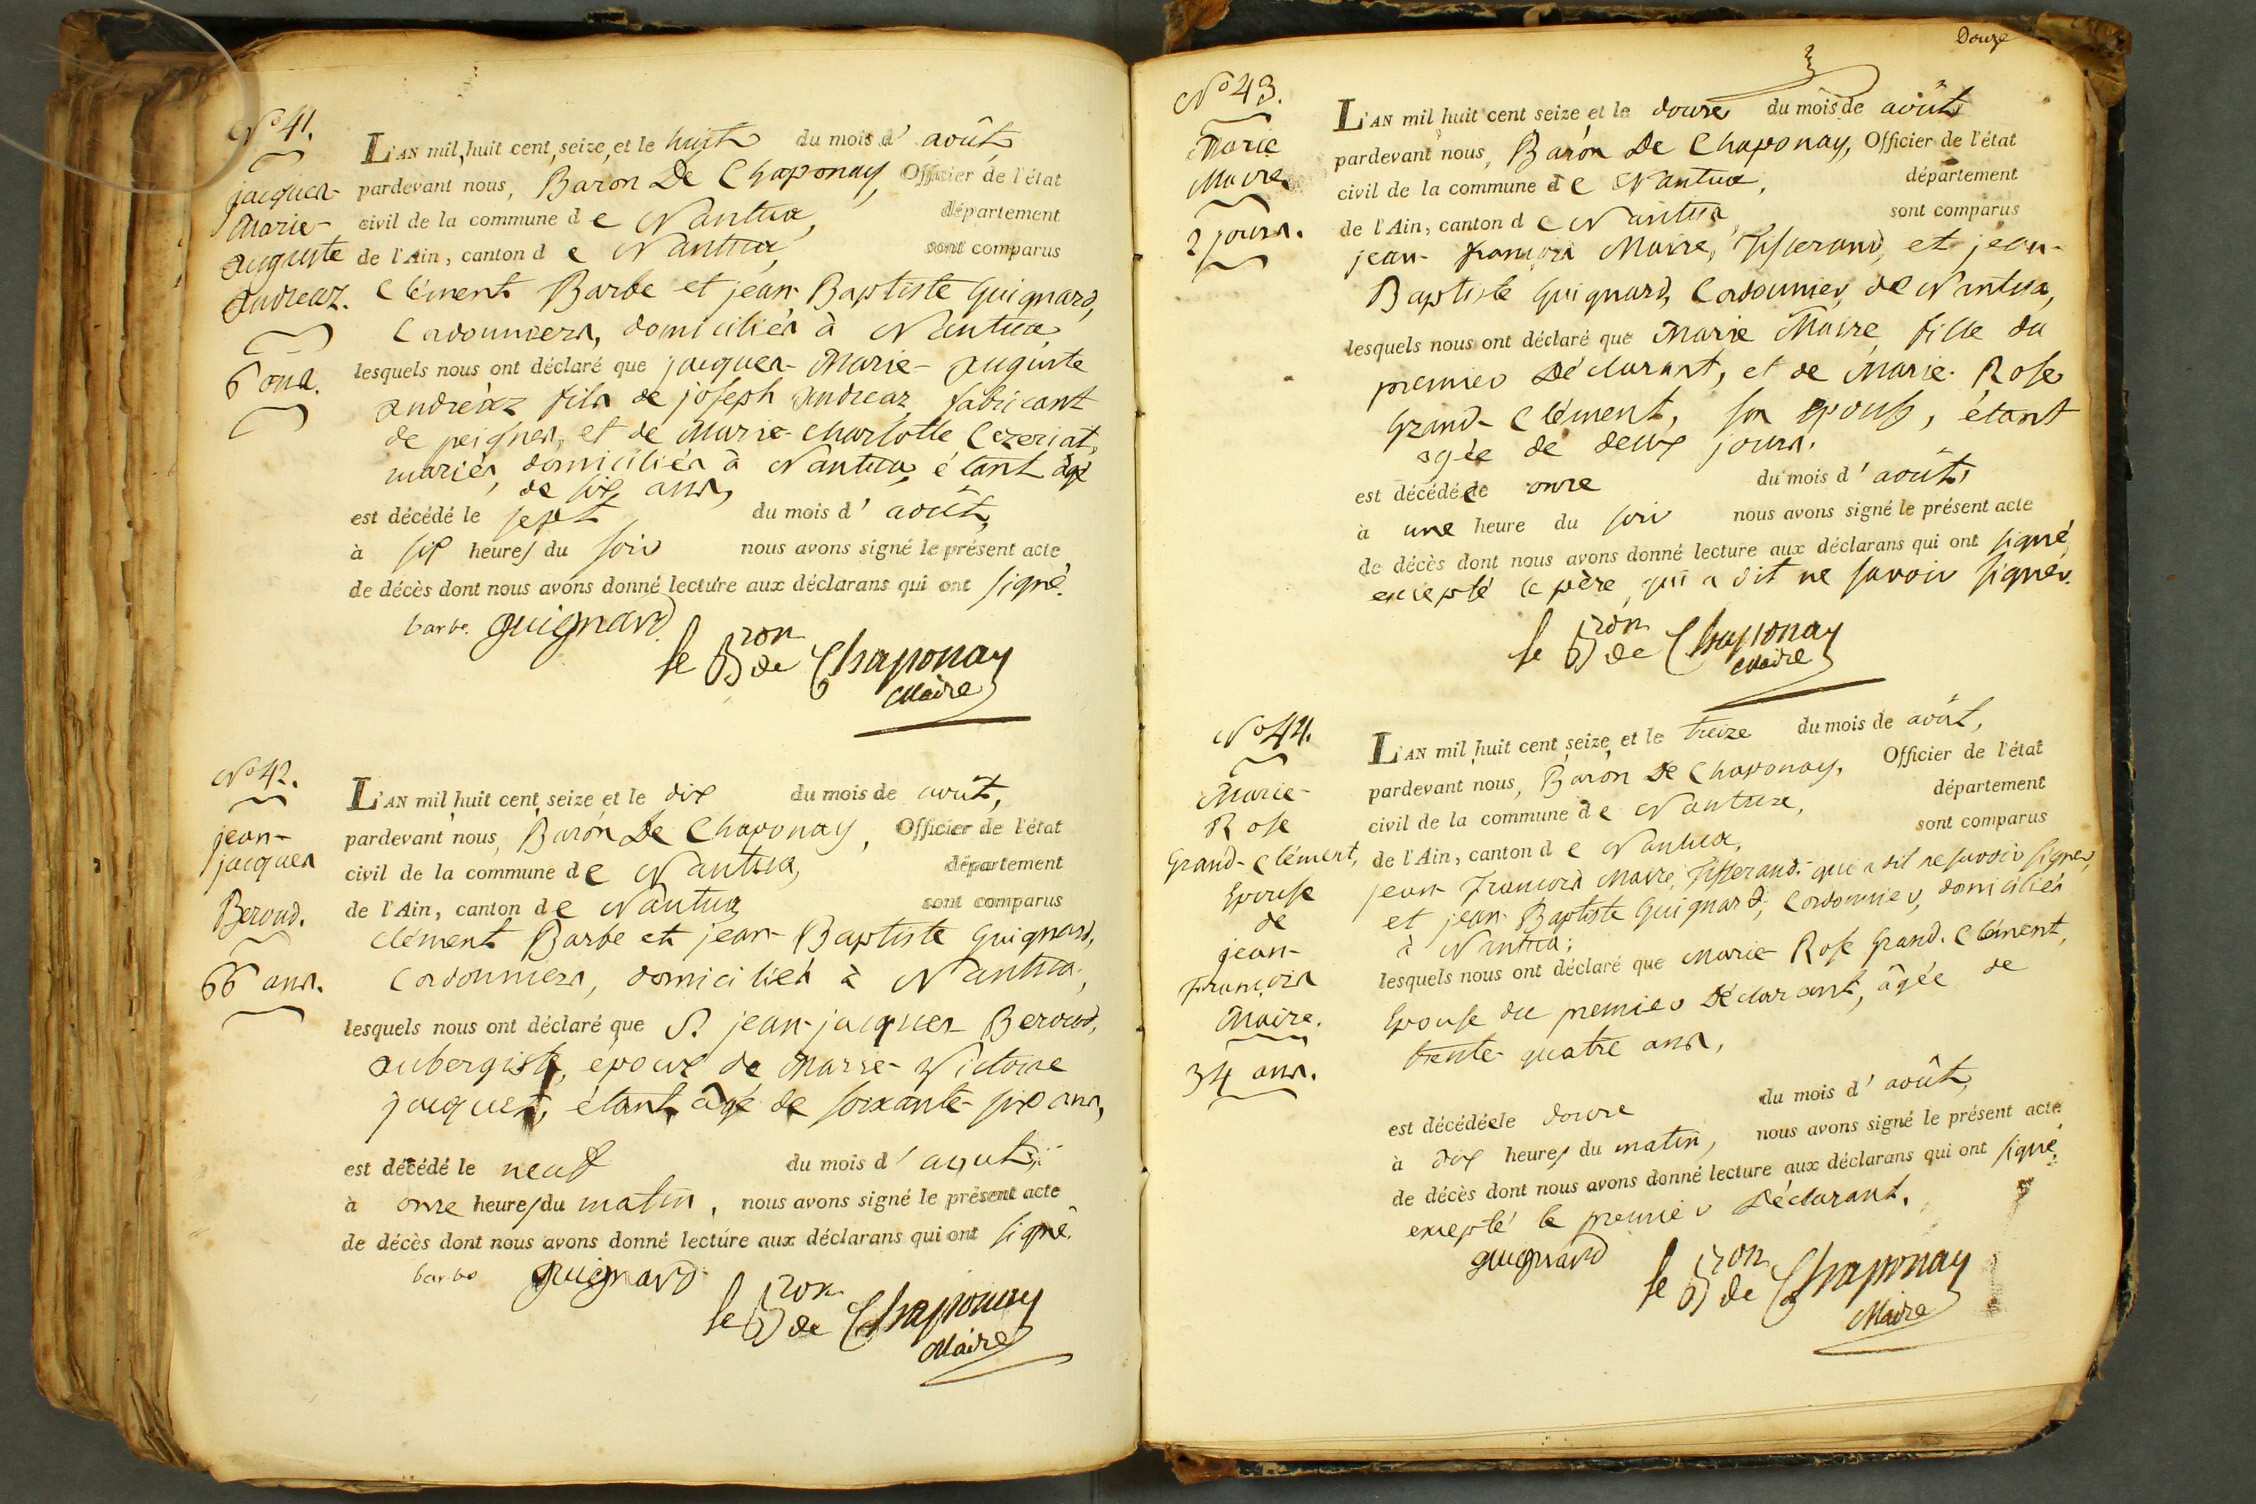 No 41.
jacques-
Marie-
auguste
andreaz.
6 ans.
L'AN mil huit cent seize et le huit du mois d' août,
pardevant nous, Baron De Chaponay, Officier de l'état
civil de la commune de Nantua, département
de l'Ain, canton de Nantua, sont comparus
Clément Barbe et jean-Baptiste Guignard,
Cordonniers, domiciliés à Nantua,
lesquels nous ont déclaré que jacques-Marie-auguste
andréaz fils de joseph andreaz, fabricant
de peignes, et de Marie-Charlotte Cezeriat,
mariés, domiciliés à Nantua, étant âgé
de six ans,
est décédé le sept du mois d' août,
à six heures du soir nous avons signé le présent acte
de décès dont nous avons donné lecture aux déclarans qui ont signé.
barbe. guignard
le Bron de Chaponay
Maire
No 42.
jean-
jacques
Beroud.
66 ans.
L'AN mil huit cent seize et le dix du mois de août,
pardevant nous, Baron De Chaponay, Officier de l'état
civil de la commune de Nantua, département
de l'Ain, canton de Nantua sont comparus
Clément Barbe et jean-Baptiste Guignard,
Cordonniers, domiciliés à Nantua,
lesquels nous ont déclaré que S. jean-jacques Beroud,
aubergiste, époux de Marie-Victoire
jacquet, étant âgé de soixante-six ans,
est décédé le neuf du mois d' août,
à onze heures du matin, nous avons signé le présent acte
de décès dont nous avons donné lecture aux déclarans qui ont signé.
barbe guignard
le Bron de Chaponay
Maire
Douze
No 43.
Marie
Maire
2 jours.
L'AN mil huit cent seize et le douze du mois de août
pardevant nous, Baron De Chaponay, Officier de l'état
civil de la commune de Nantua, département
de l'Ain, canton de Nantua, sont comparus
jean-françois Maire, Tisserand, et jean-
Baptiste Guignard, Cordonnier, de Nantua,
lesquels nous ont déclaré que Marie Maire, fille du
premier Déclarant, et de Marie-Rose
Grand-Clément, son Epouse, étant
agée de deux jours.
est décédée le onze du mois d' août,
à une heure du soir nous avons signé le présent acte
de décès dont nous avons donné lecture aux déclarans qui ont signé,
excepté le père, qui a dit ne savoir signer.
le Bron de Chaponay
Maire
No 44.
Marie-
Rose
Grand-Clément,
Epouse
de
jean-
François
Maire.
34 ans.
L'AN mil huit cent seize et le treize du mois de août,
pardevant nous, Baron De Chaponay, Officier de l'état
civil de la commune de Nantua, département
de l'Ain, canton de Nantua, sont comparus
jean-François Maire, Tisserand, qui a dit ne savoir signer,
et jean-Baptiste Guignard, Cordonnier, domiciliés
à Nantua;
lesquels nous ont déclaré que Marie-Rose Grand-Clément,
Epouse du premier Déclarant, âgée de
trente-quatre ans,
est décédée le douze du mois d' août,
à dix heures du matin, nous avons signé le présent acte
de décès dont nous avons donné lecture aux déclarans qui ont signé,
excepté le premier Déclarant.
guignard
le Bron de Chaponay
Maire